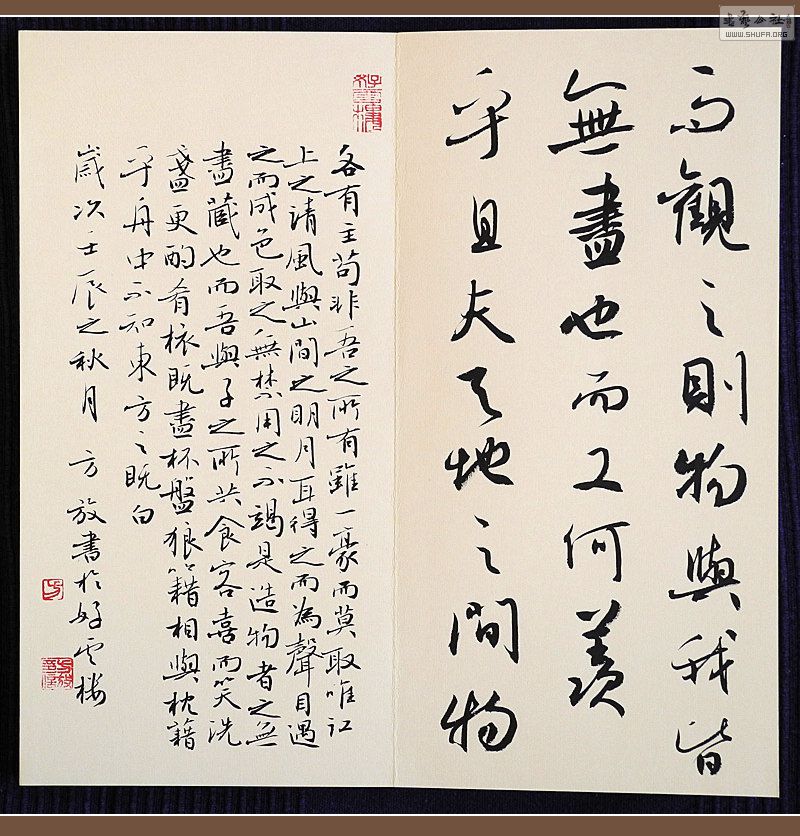 而觀之則物與我皆
無盡也而又何羨
乎且夫天地之間物
各有主苟非吾之所有雖一豪而莫取唯江
上之清風與山間之明月耳得之而為聲目遇
之而成色取之無禁用之不竭是造物者之無
盡藏也而吾與子之所共食客喜而笑洗
盞更酌肴核既盡杯盤狼籍相與枕籍
乎舟中不知東方之既白
歲次壬辰之秋月 方放書於好云楼
書藝公社
WWW.SHUFA.ORG